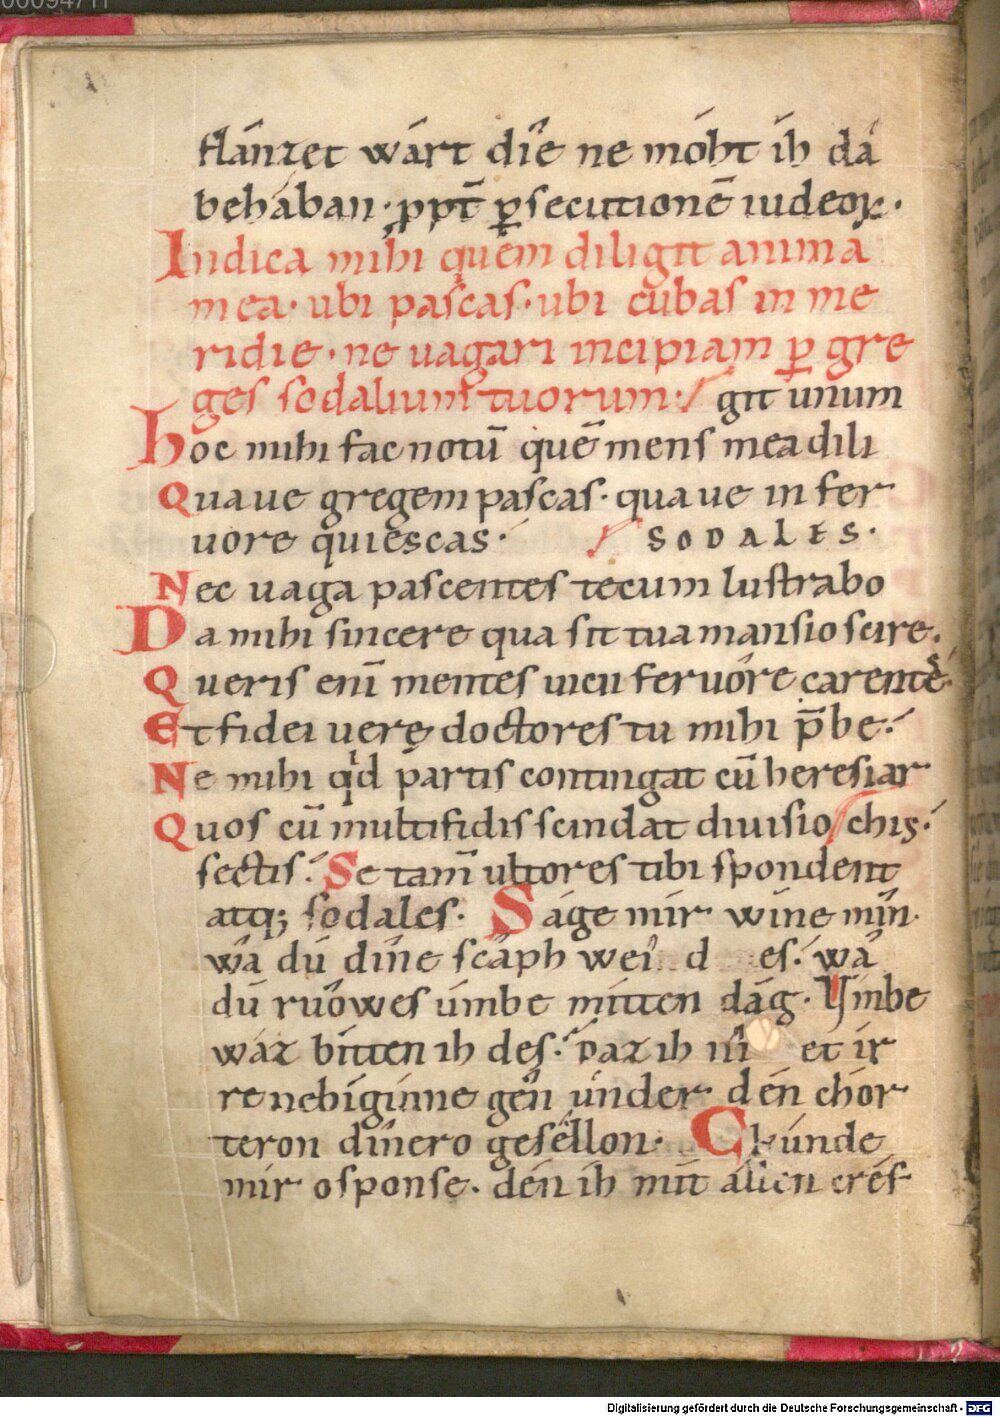 00094711
flánzet wárt díe ne móht ih dâ
behában· ꝓpt̄ ꝑsecutionē iudeoꝝ·
Indica mihi quem diligit anima
mea· ubi pascas· ubi cubas in me
ridie· ne uagari incipiam ꝑ gre
ges sodalium tuorum· / git unum
hoc mihi fac notū quē mens mea dili
Quaue gregem pascas· quaue in fer
uore quiescas· / SODALES·
Nec uaga pascentes tecum lustrabo
Da mihi sincere qua sit tua mansio scire·
Queris enī mentes uicii feruóre carentes
Et fidei uerę doctores tu mihi p̄be·
Ne mihi qd partis contingat cū heresiar
Quos cū multifidis scindat diuisio / chis·
sectis· Se tam̄ ultores tibi spondent
atq; sodales· Ságe mír wíne mîn·
wâ dû dîne scâph wei d es· wâ
dû rûowes úmbe mítten dág· Umbe
wáz bítten ih des· Daz ih nî et ir
re nebigínne gên únder dén chór
teron dînero geséllon· Chúnde
mir o sponse· dén ih mít állen crêf
Digitalisierung gefördert durch die Deutsche Forschungsgemeinschaft - DFG